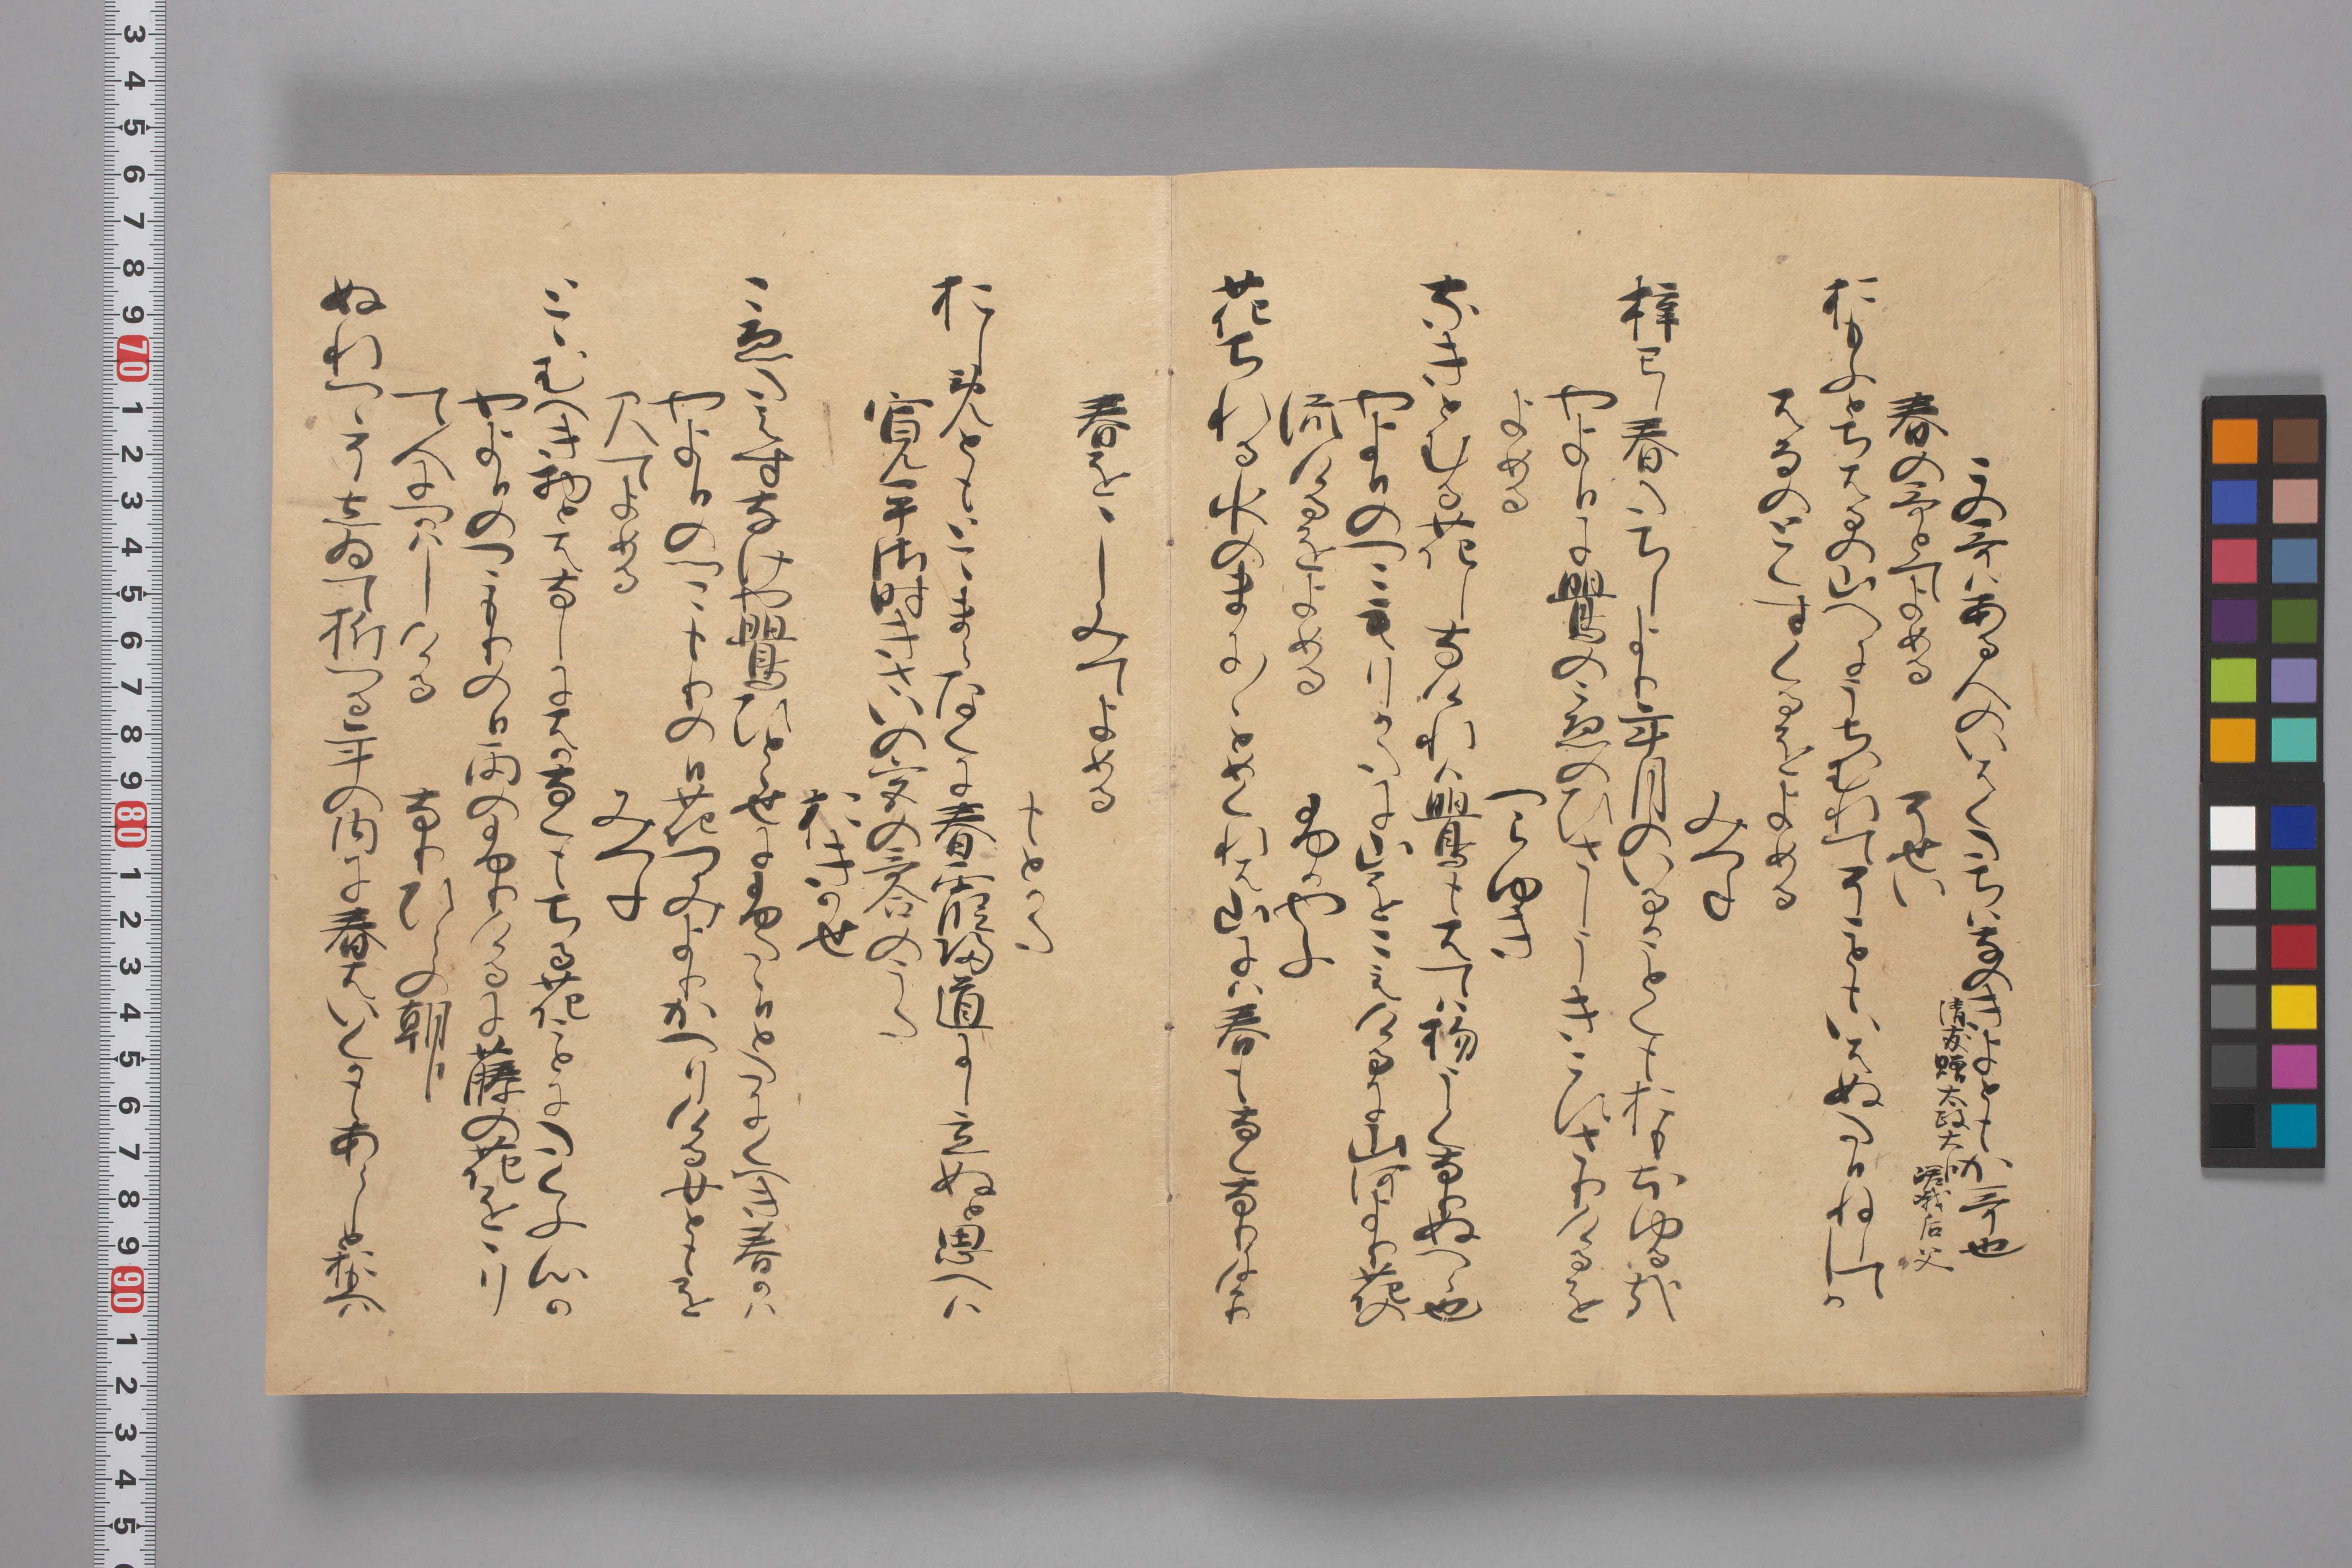 この哥はある人のいはくたち花のきよともか哥也
清友贈太政大臣 嵯峨后父
春の哥とてよめる そせい
おもふとちはるの山へにうちむれてそこともいはぬたひねしてしか
はるのとくすくるをよめる
みつね
梓弓春たちしより年月のいるかことくもおもほゆる哉
やよひに鶯のこゑのひさしうきこえさりけるを
よめる つらゆき
なきとむる花しなけれは鶯もはては物うくなりぬへら也
やよひのつこもりかたに山をこえけるに山河より花の
なかれけるをよめる ふかやふ
花ちれる水のまにまにとめくれは山には春もなくなりにけり
春をおしみてよめる
もとかた
おしめともとゝまらなくに春霞帰道にしたちぬと思へは
寛平御時きさいの宮の哥合のうた
おきかせ
こゑたえすなけや鶯ひとゝせにふたゝひとたにくへき春かは
やよひのつこもりの日花つみよりかへりける女ともを
見てよめる みつね
とゝむへき物とはなしにはかなくもちる花ことにたくふこゝろか
やよひのつこもりの日雨のふりけるに藤の花をおりて
人につかはしける なりひらの朝臣
ぬれつゝそしゐて折つる年の内に春はいくかもあらしと思へは